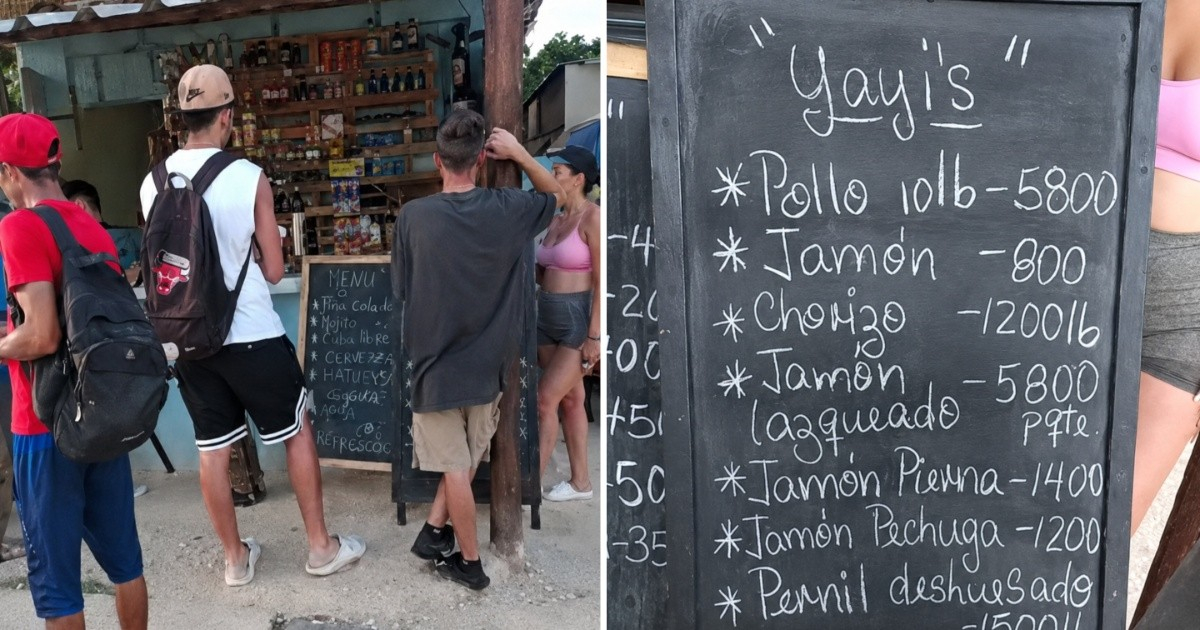 MENU
* Piña Colada
* Mojito
* Cuba libre
* CERVEZZA
* HATUEYS
AGUA
REFRESCO
-4
-20
-50
-50
-35
"Yayi's"
* Pollo 10lb - 5800
* Jamón - 800
* Chorizo - 1200lb
* Jamón - 5800
lazqueado pqte.
* Jamón Pierna - 1400
* Jamón Pechuga - 1200
* Pernil deshuesado
- 1500lb